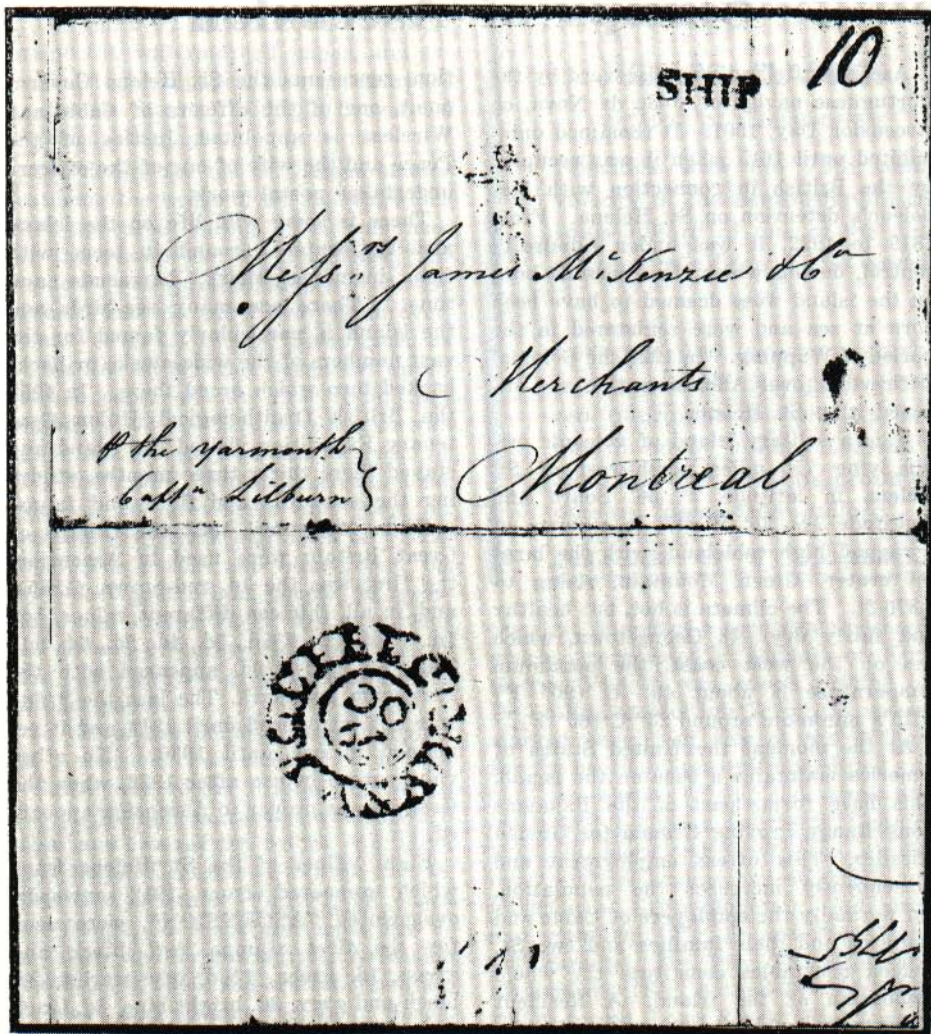 SHIP 10
Messrs. James McKenzie & Co
Merchants
Montreal
the Yarmouth
Captn Lilburn